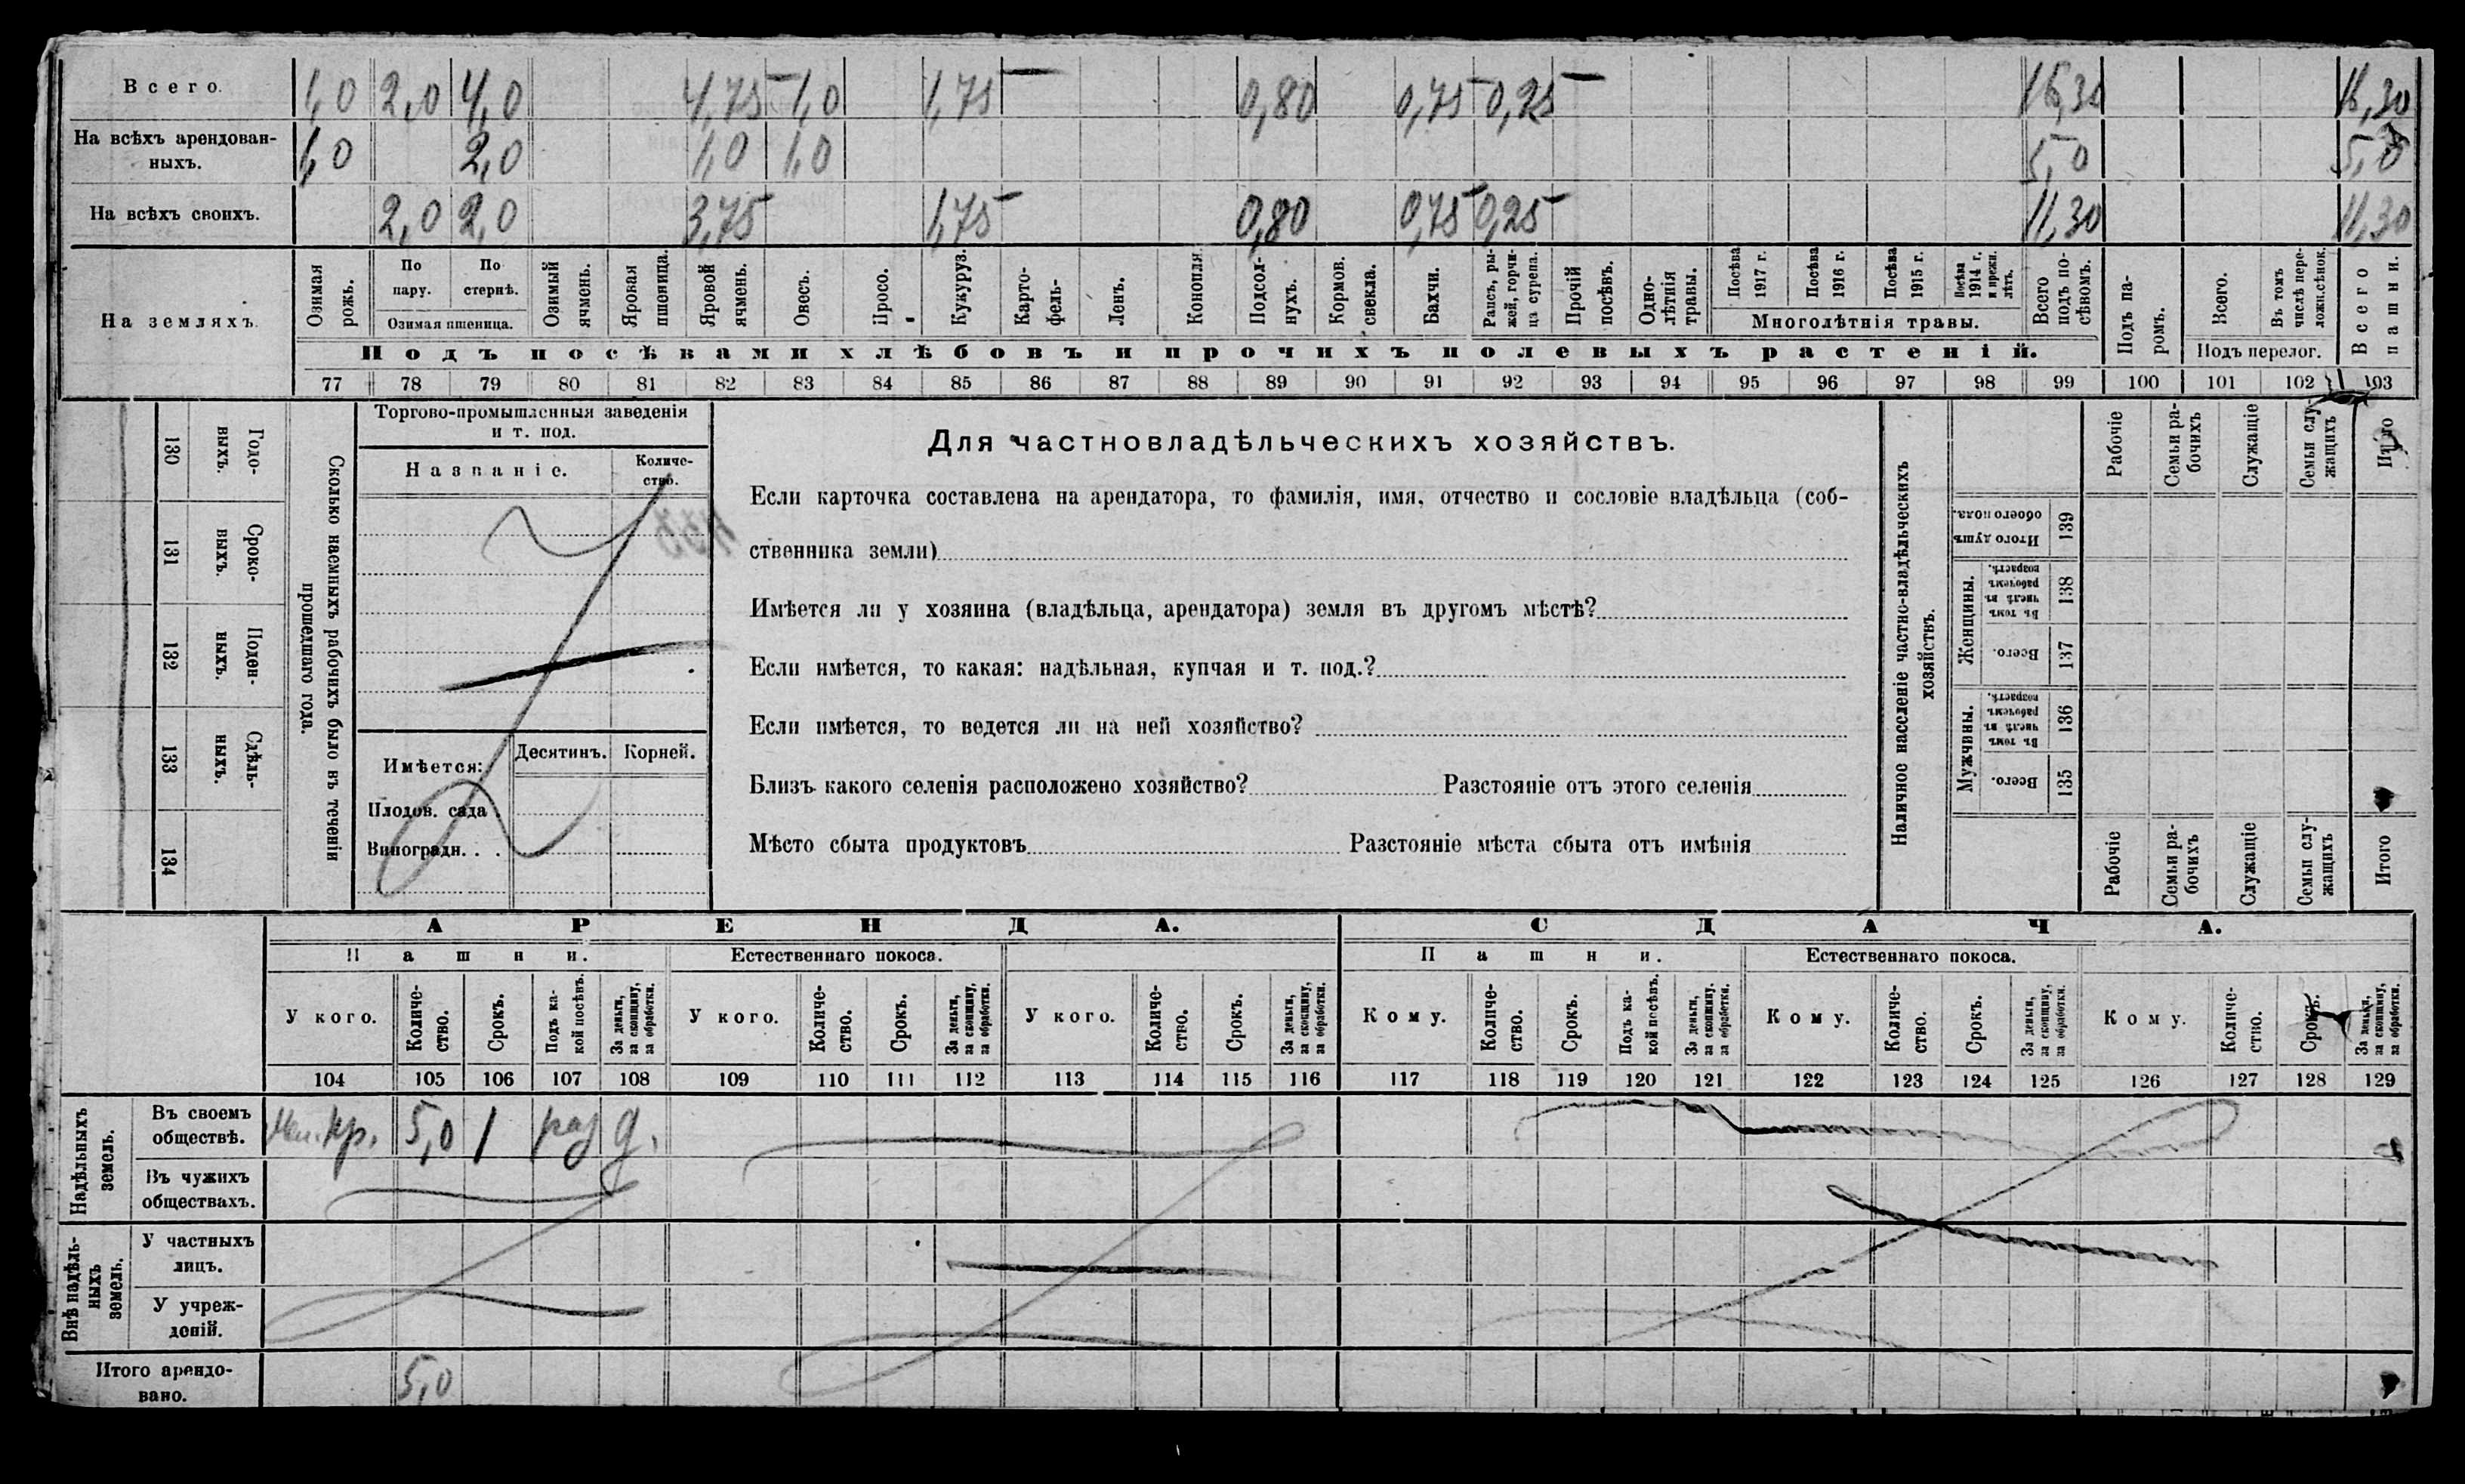 Всего. 1,0 2,0 4,0 4,75 1,0 1,75 0,80 0,75 0,25 16,30 16,30
На всѣхъ арендован-
ныхъ. 1,0 2,0 1,0 1,0 5,0 5,0
На всѣхъ своихъ. 2,0 2,0 3,75 1,75 0,80 0,75 0,25 11,30 11,30
На земляхъ.
Озимая рожь.
По пару.
По стернѣ.
Озимая пшеница.
Озимый ячмень.
Яровая пшеница.
Яровой ячмень.
Овесъ.
Просо.
Кукуруз.
Карто-
фель.
Ленъ.
Конопля.
Подсол-
нухъ.
Кормов. свекла.
Бахчи.
Рапсъ, ры-
жей, горчи-
ца сурепа.
Прочій посѣвъ.
Одно-
лѣтнія травы.
Посѣва 1917 г.
Посѣва 1916 г.
Посѣва 1915 г.
Посѣва 1914 г. и прежн. лѣтъ.
Многолѣтнія травы.
Всего подъ по-
сѣвомъ.
Подъ па-
ромъ.
Всего.
Въ томъ числѣ пере-
ложн.сѣнок.
Подъ перелог.
Всего пашни.
Подъ посѣвами хлѣбовъ и прочихъ полевыхъ растеній.
77 78 79 80 81 82 83 84 85 86 87 88 89 90 91 92 93 94 95 96 97 98 99 100 101 102 103
130 Годо-
выхъ.
131 Сроко-
ныхъ.
132 Поден-
ныхъ.
133 Сдѣль-
ныхъ.
134
Сколько наемныхъ рабочихъ было въ теченіи
прошедшаго года.
Торгово-промышленныя заведенія
и т. под.
Названіе.
Количе-
ство.
Имѣется:
Десятинъ.
Корней.
Плодов. сада
Виноградн. . .
Для частновладѣльческихъ хозяйствъ.
Если карточка составлена на арендатора, то фамилія, имя, отчество и сословіе владѣльца (соб-
ственника земли)
Имѣется ли у хозяина (владѣльца, арендатора) земля въ другомъ мѣстѣ?
Если имѣется, то какая: надѣльная, купчая и т. под.?
Если имѣется, то ведется ли на ней хозяйство?
Близъ какого селенія расположено хозяйство? Разстояніе отъ этого селенія
Мѣсто сбыта продуктовъ Разстояніе мѣста сбыта отъ имѣнія
Наличное населеніе частно-владѣльческихъ
хозяйствъ.
Рабочіе
Семьи ра-
бочихъ
Служащіе
Семьи слу-
жащихъ
Итого
Итого душъ обоего пола.
139
Женщины.
Въ томъ числѣ въ рабочемъ возрастѣ.
138
Всего.
137
Мужчины.
Въ томъ числѣ въ рабочемъ возрастѣ.
136
Всего.
135
Рабочіе
Семьи ра-
бочихъ
Служащіе
Семьи слу-
жащихъ
Итого
АРЕНДА. СДАЧА.
Пашни. Естественнаго покоса. Пашни. Естественнаго покоса.
У кого.
Количе-
ство.
Срокъ.
Подъ ка-
кой посѣвъ.
За деньги, за скопщину, за обработки.
У кого.
Количе-
ство.
Срокъ.
За деньги, за скопщину, за обработки.
У кого.
Количе-
ство.
Срокъ.
За деньги, за скопщину, за обработки.
Кому.
Количе-
ство.
Срокъ.
Подъ ка-
кой посѣвъ.
За деньги, за скопщину. за обработки.
Кому.
Количе-
ство.
Срокъ.
За деньги, за скопщину, за обработки.
Кому.
Количе-
ство.
Срокъ.
За деньги, за скопщину, за обработки.
104 105 106 107 108 109 110 111 112 113 114 115 116 117 118 119 120 121 122 123 124 125 126 127 128 129
Надѣльныхъ земель.
Въ своемъ
обществѣ. кр. 5,0 1 раз д.
Въ чужихъ
обществахъ.
Внѣ надѣль-
ныхъ земель.
У частныхъ
лицъ.
У учреж-
деній.
Итого арендо-
вано. 5,0